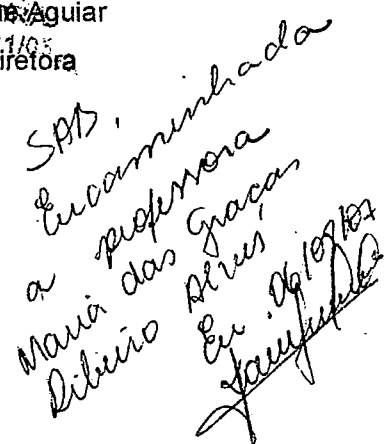 Aguiar
Diretora
SAB,
Encaminhada
a professora
Maria das Graças
Ribeiro Alves
Em. 06/07/07